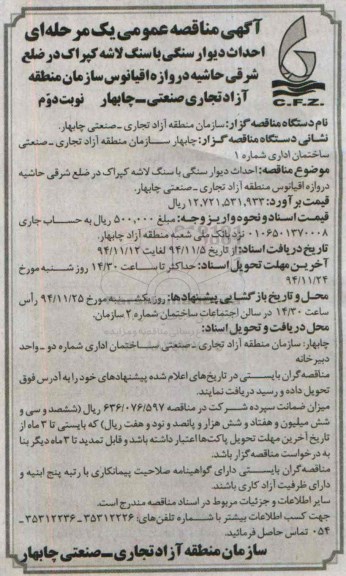 آگهی مناقصه عمومی یک مرحله‌ای
احداث دیوار سنگی با سنگ لاشه کپراک در ضلع
شرقی حاشیه دروازه اقیانوس سازمان منطقه
آزاد تجاری صنعتی ـ چابهار نوبت دوّم
C.F.Z.
نام دستگاه مناقصه گزار: سازمان منطقه آزاد تجاری ـ صنعتی چابهار.
نشانی دستگاه مناقصه گزار: چابهار سازمان منطقه آزاد تجاری ـ صنعتی
ساختمان اداری شماره ۱
موضوع مناقصه: احداث دیوار سنگی با سنگ لاشه کپراک در ضلع شرقی حاشیه
دروازه اقیانوس منطقه آزاد تجاری ـ صنعتی چابهار.
قیمت برآورد: ۱۲,۷۲۱,۵۳۱,۹۳۳ ریال
قیمت اسناد و نحوه واریز وجه: مبلغ ۵۰۰,۰۰۰ ریال به حساب جاری
۰۱۰۶۵۰۱۳۷۰۰۰۸ نزد بانک ملی شعبه منطقه آزاد چابهار.
تاریخ دریافت اسناد: از تاریخ ۹۴/۱۱/۵ لغایت ۹۴/۱۱/۱۲
آخرین مهلت تحویل اسناد: حداکثر تا ساعت ۱۴/۳۰ روز شنبه مورخ
۹۴/۱۱/۲۴
محل و تاریخ بازگشایی پیشنهادها: روز یکشنبه مورخ ۹۴/۱۱/۲۵ رأس
ساعت ۱۴/۳۰ در سالن اجتماعات ساختمان شماره ۲ سازمان.
محل دریافت و تحویل اسناد:
چابهار: سازمان منطقه آزاد تجاری ـ صنعتی ساختمان اداری شماره دو ـ واحد
دبیرخانه
مناقصه‌گران بایستی در تاریخ‌های اعلام شده پیشنهادهای خود را به آدرس فوق
تحویل داده و رسید دریافت نمایند.
میزان ضمانت سپرده شرکت در مناقصه ۶۳۶/۰۷۶/۵۹۷ ریال (ششصد و سی و
شش میلیون و هفتاد و شش هزار و پانصد و نود و هفت ریال) که بایستی تا ۳ ماه از
تاریخ آخرین مهلت تحویل پاکت‌ها اعتبار داشته باشد و قابل تمدید تا ۳ ماه دیگر بنا
به درخواست مناقصه گزار باشد.
مناقصه‌گران بایستی دارای گواهینامه صلاحیت پیمانکاری با رتبه پنج ابنیه و
دارای ظرفیت آزاد کاری باشند.
سایر اطلاعات و جزئیات مربوط در اسناد مناقصه مندرج است.
جهت کسب اطلاعات بیشتر با شماره تلفن‌های: ۳۵۳۱۲۲۲۶ ـ ۳۵۳۱۲۲۳۶ ـ
۰۵۴ تماس حاصل فرمائید.
سازمان منطقه آزاد تجاری ـ صنعتی چابهار